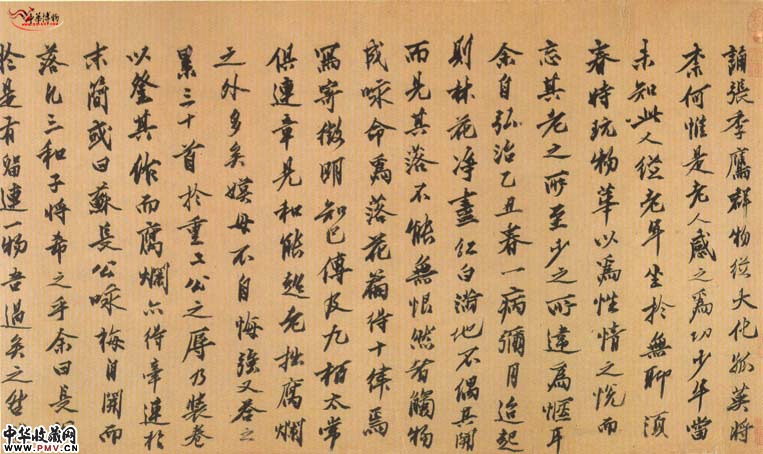 誦張季鷹群物從大化孤英將
柰何惟是老人感之為切少年當
未知此人從老年坐於無聊須
春時玩物華以為性情之悅而
忘其老之所至少之所違為愜耳
余自弘治乙丑春一病彌月迨起
則林花淨盡紅白滿地不偶其開
而見其落不能無悵然者觸物
成詠命為落花篇得十律焉
寫寄徵明知己傳及九栢太常
俱連章見和能超老拙腐爛
之外多矣嫫母不自悔強又荅之
累三十首於重二公之辱乃裝卷
以登其作而腐爛亦得牽連於
末簡或曰蘇長公詠梅自開而
落凡三和子將希之乎余曰長
於是有留連一物吾過矣之
中华博物
中华收藏网
WWW.PMV.CN